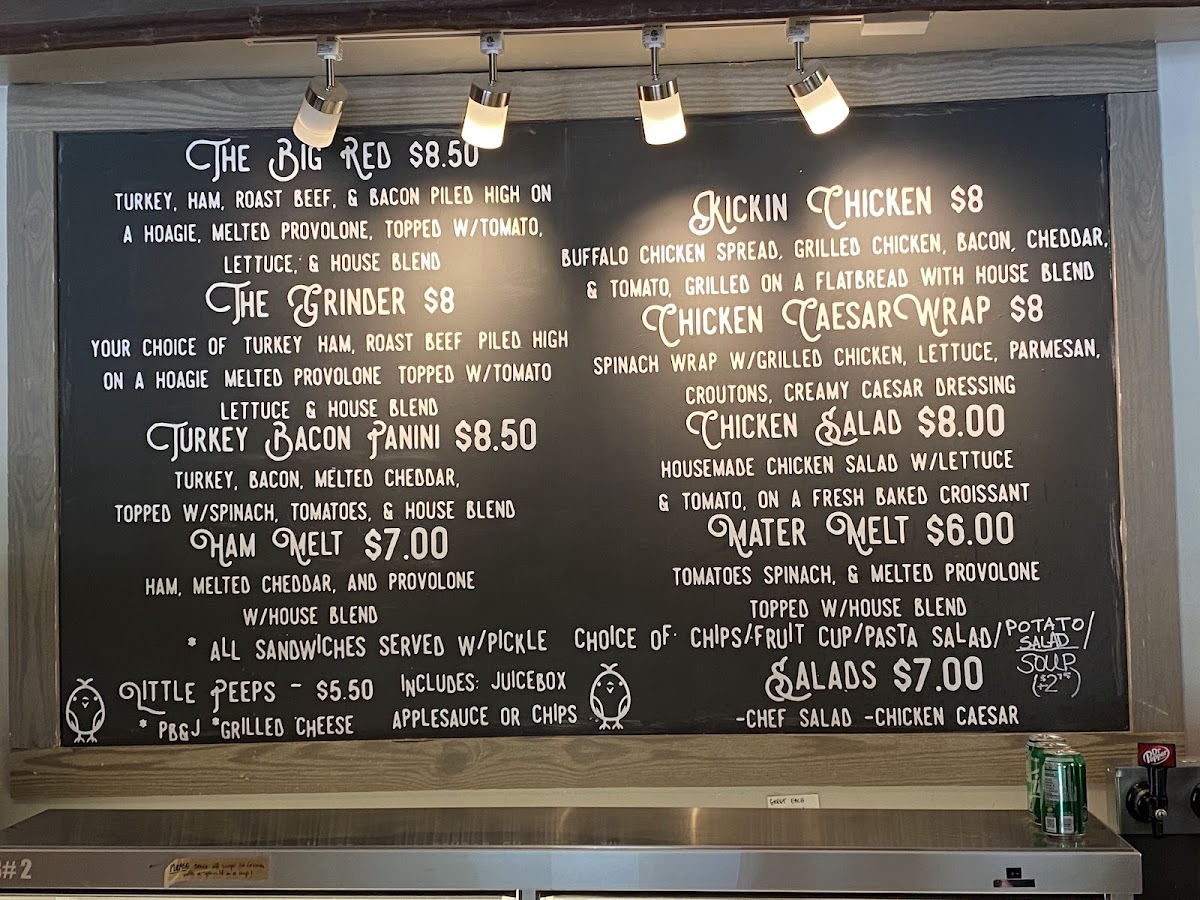 The Big Red $8.50
Turkey, Ham, Roast Beef, & Bacon piled high on
a hoagie, melted provolone, topped w/tomato,
lettuce, & house blend
The Grinder $8
Your choice of turkey ham, roast beef piled high
on a hoagie melted provolone topped w/tomato
lettuce & house blend
Turkey Bacon Panini $8.50
Turkey, bacon, melted cheddar,
topped w/spinach, tomatoes, & house blend
Ham Melt $7.00
Ham, melted cheddar, and provolone
w/house blend
Kickin Chicken $8
Buffalo chicken spread, grilled chicken, bacon, cheddar,
& tomato, grilled on a flatbread with house blend
Chicken Caesar Wrap $8
Spinach wrap w/grilled chicken, lettuce, parmesan,
croutons, creamy caesar dressing
Chicken Salad $8.00
Housemade chicken salad w/lettuce
& tomato, on a fresh baked croissant
Mater Melt $6.00
Tomatoes spinach, & melted provolone
topped w/house blend
* All sandwiches served w/pickle choice of chips/fruit cup/pasta salad/
POTATO/
SALAD
SOUP
Little Peeps - $5.50
* PB&J *Grilled Cheese
Includes: juicebox
applesauce or chips
Salads $7.00
-Chef Salad -Chicken Caesar
Dr Pepper
#2